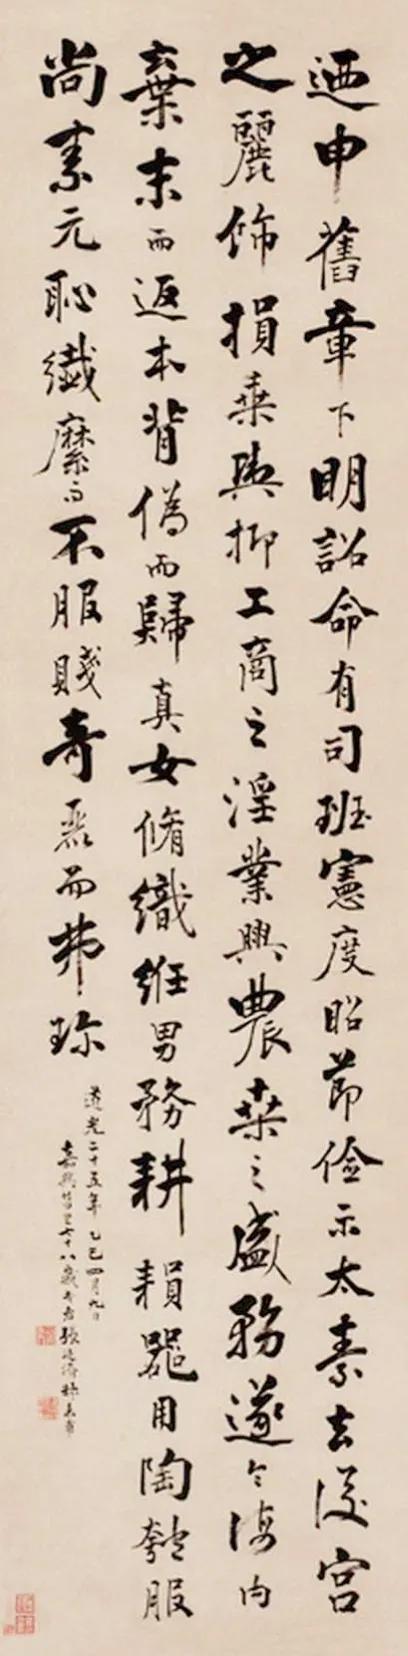 迺申舊章下明詔命有司班憲度昭節儉示太素去後宮
之麗飾損乗輿抑工商之淫業興農桒之盛務遂令海内
棄末而返本背偽而歸真女脩織絍男務耕耘器用陶匏服
尚素元恥纎靡而不服賤奇麗而弗珎
道光二十五年乙巳四月九日
嘉興 七十八歲 張廷濟